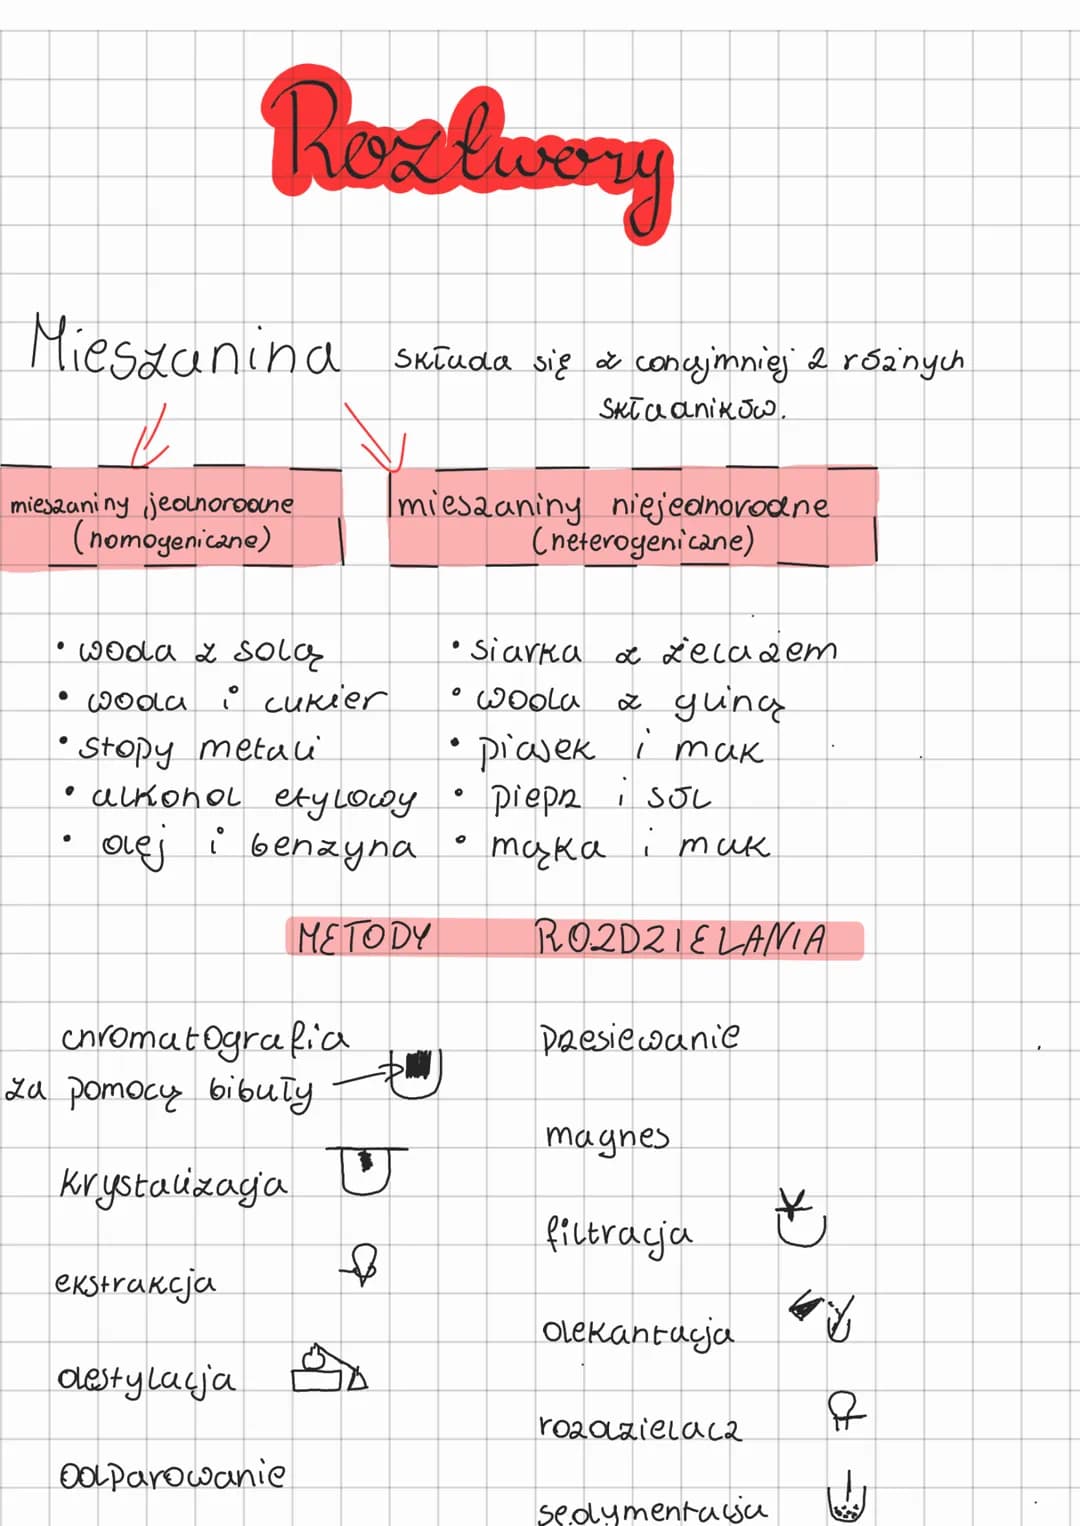 Roztwory
Mieszanina składa się z conajmniej 2 różnych
składników.
mieszaniny jednorodne
(homogeniczne)
mieszaniny niejednorodne
(heterogeniczne)
• woda z solą
• woda i cukier
• stopy metali
• alkohol etylowy
• olej i benzyna
• siarka z żelazem
• woda z gliną
• piasek i mak
• pieprz i sól
• mąka i mak
METODY ROZDZIELANIA
chromatografia
za pomocą bibuły
krystalizacja
ekstrakcja
destylacja
odparowanie
przesiewanie
magnes
filtracja
dekantacja
rozdzielacz
sedymentacja